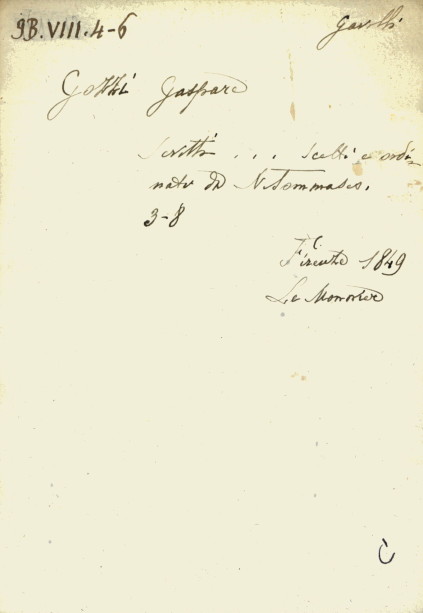 9B.VIII.4-6
Gozzi Gaspare
Scritti . . . scelti e ordi-
nati da N Tommaseo.
3-8
Firenze 1849
Le Monnier